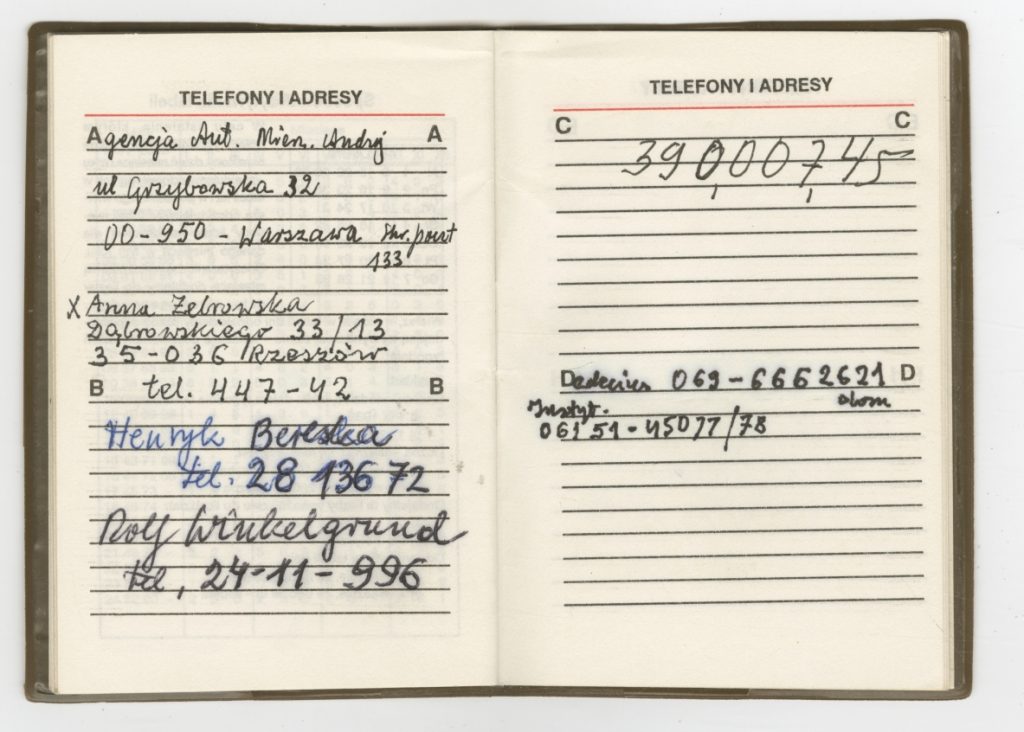 TELEFONY I ADRESY
A A
Agencja Aut. Mien. Andrzej
ul Grzybowska 32
00-950 - Warszawa Skr. poczt
133
X Anna Żebrowska
Dąbrowskiego 33/13
35-036 Rzeszów
B tel. 447-42 B
Henryk Bereska
tel. 28 136 72
Rolf Winkelgrund
tel, 24-11-996
TELEFONY I ADRESY
C C
39000745
D Dedecius 069-6662621 D
Instyt.
06151-45077/78